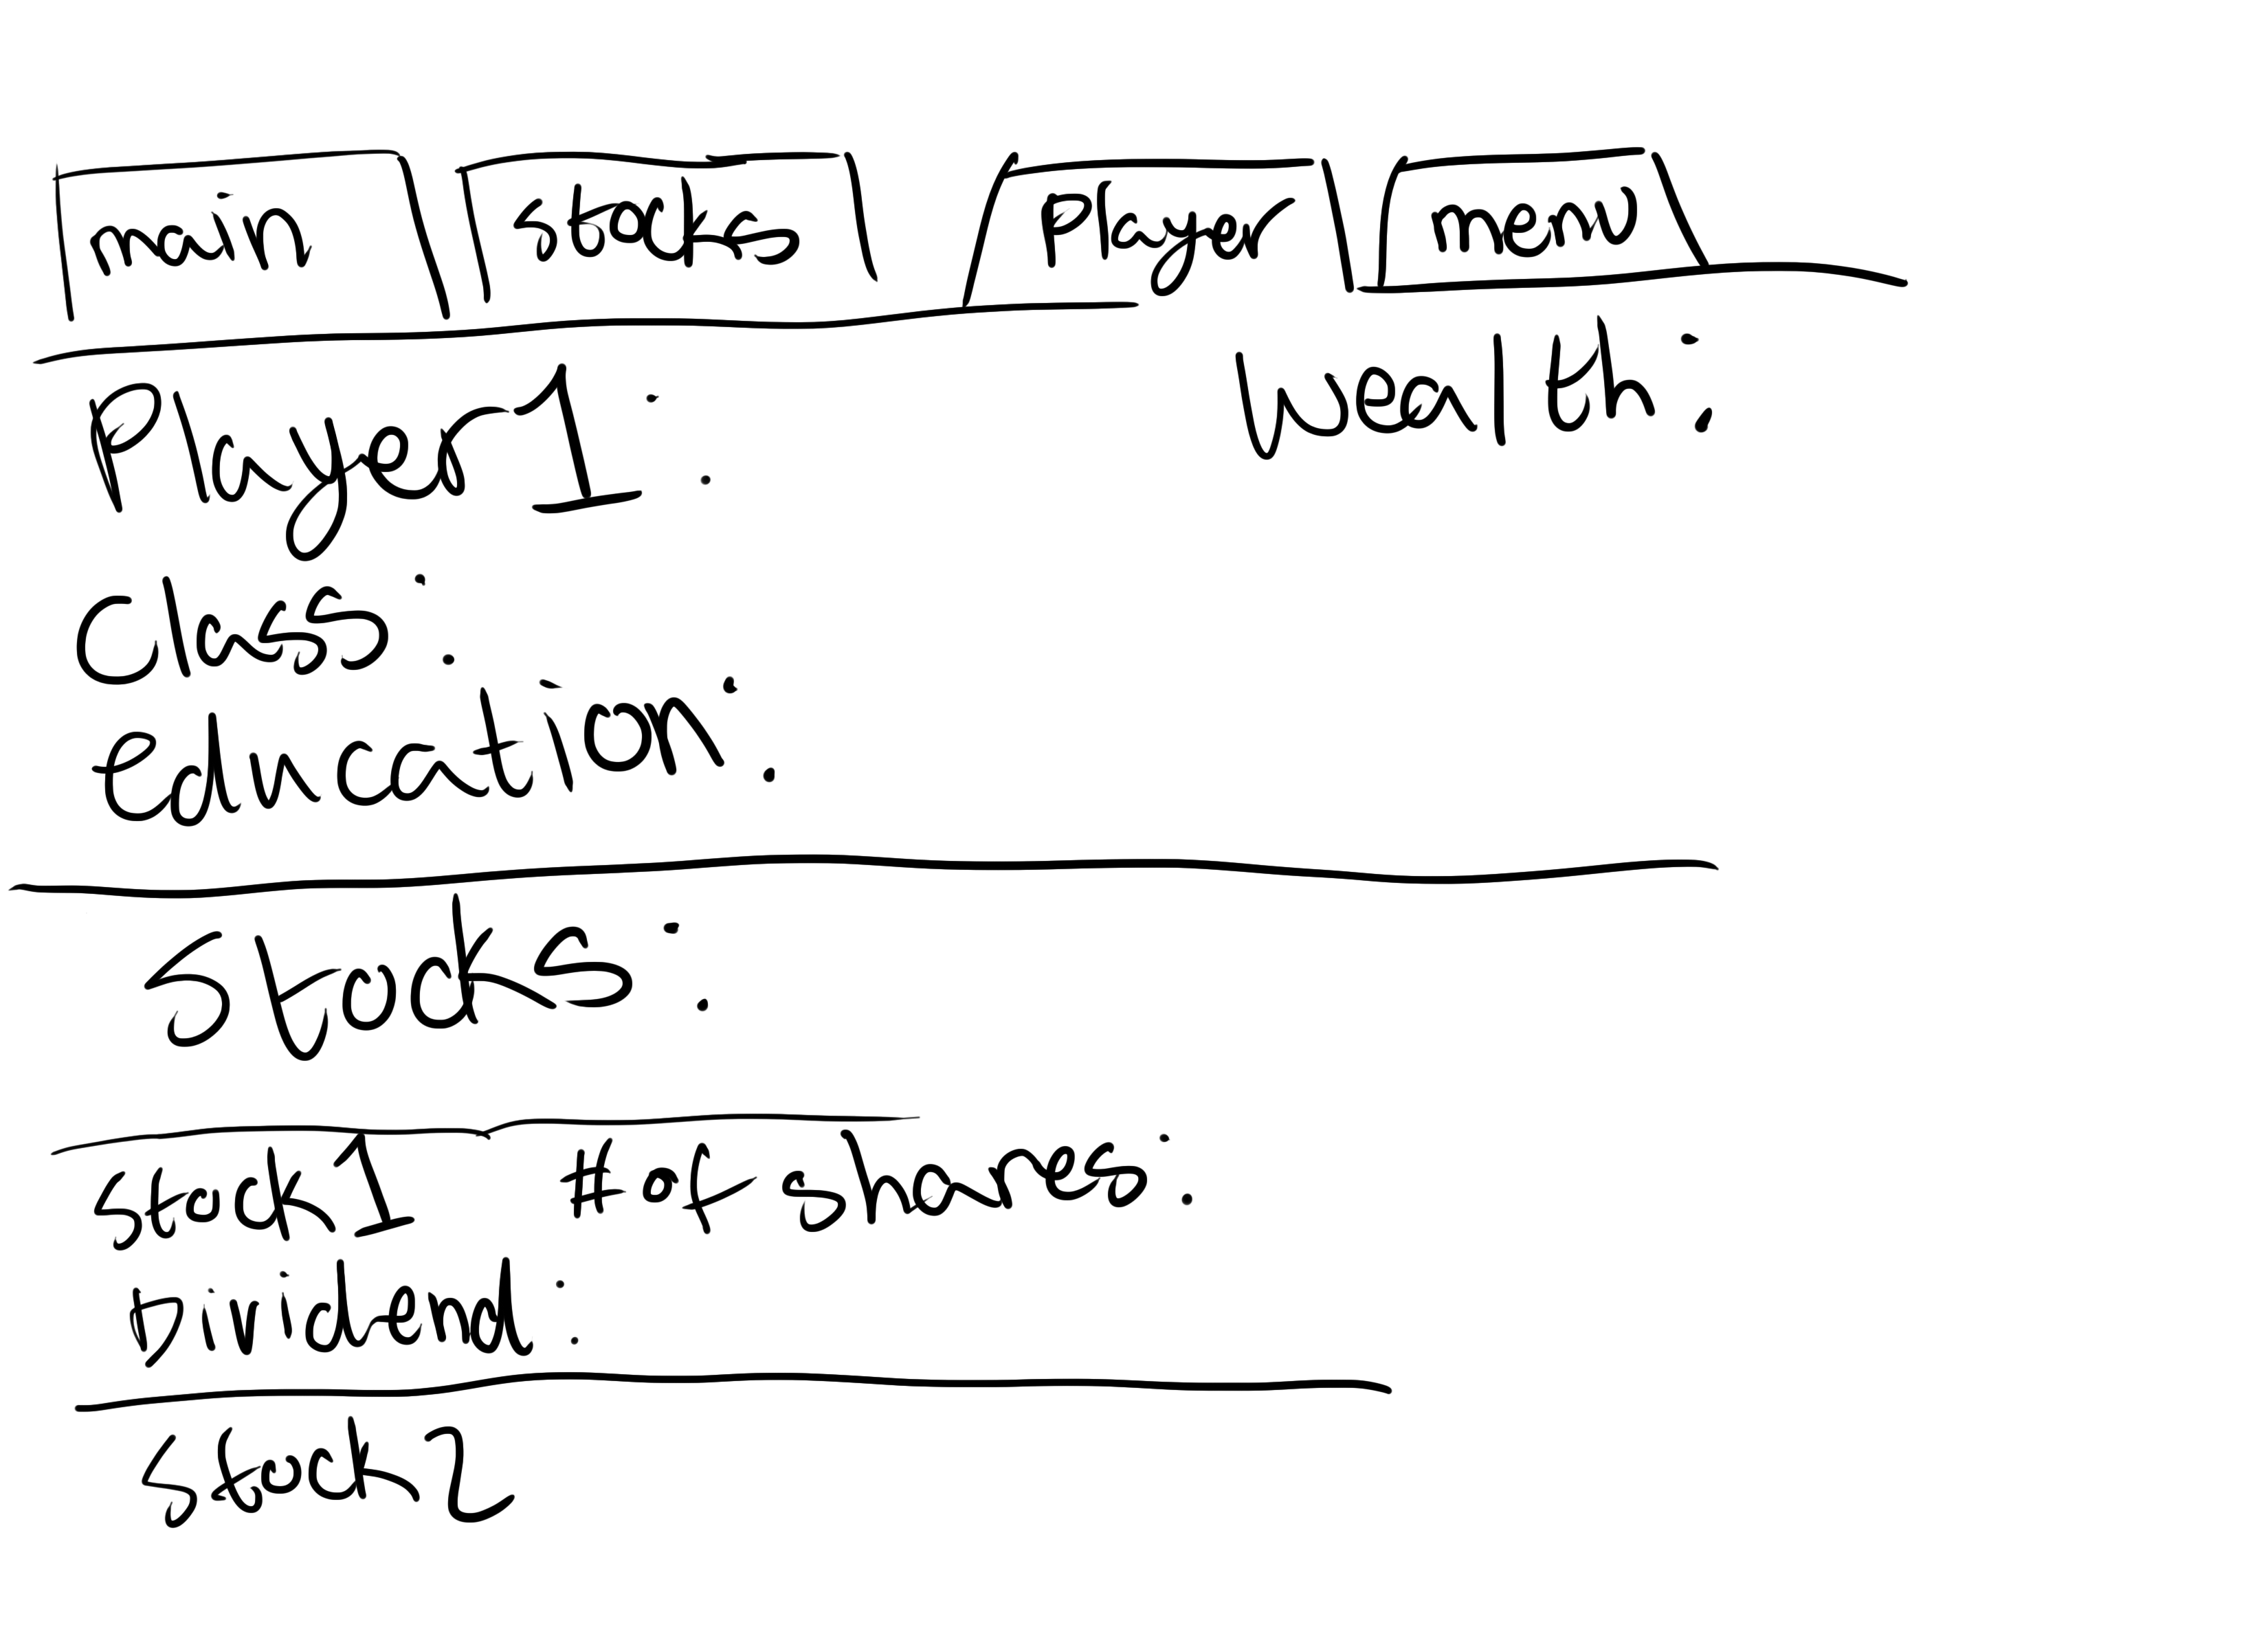 main stocks Player menu
Player 1: Wealth:
Class:
education:
Stocks:
Stock 1 # of shares:
Dividend:
Stock 2